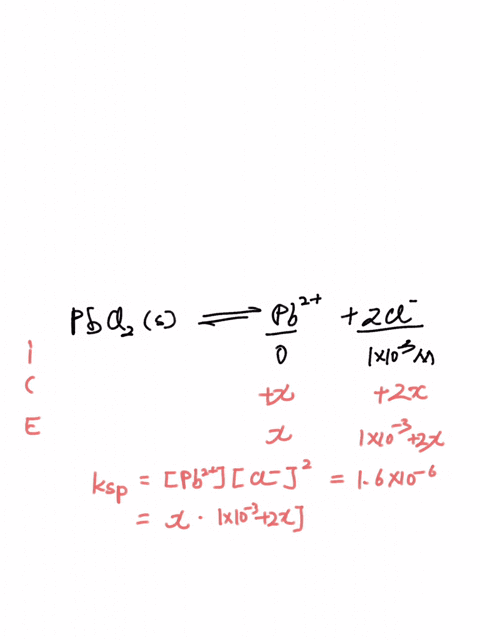 PbCl₂ (s) ⇌ Pb²⁺ + 2Cl⁻
I 0 1×10⁻³ M
C +x +2x
E x 1×10⁻³+2x
ksp = [Pb²⁺][Cl⁻]² = 1.6×10⁻⁶
= x · 1×10⁻³+2x]